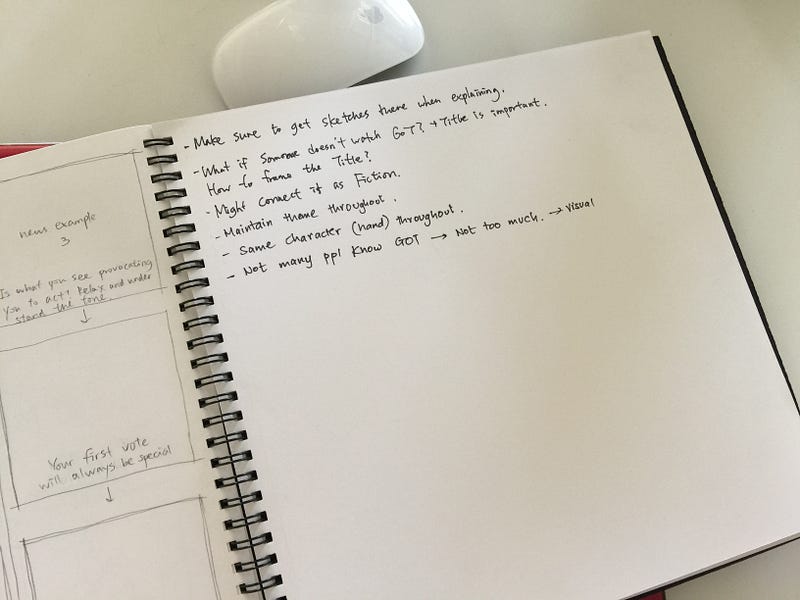 news example
3
Is what you see provocating
you to act? Relax and under
stand the tone.
Your first vote
will always be special
- Make sure to get sketches there when explaining.
- What if someone doesn't watch GOT? → Title is important.
How to frame the Title?
- Might connect it as Fiction.
- Maintain theme throughout.
- Same character (hand) throughout.
- Not many ppl know GOT → Not too much. → visual